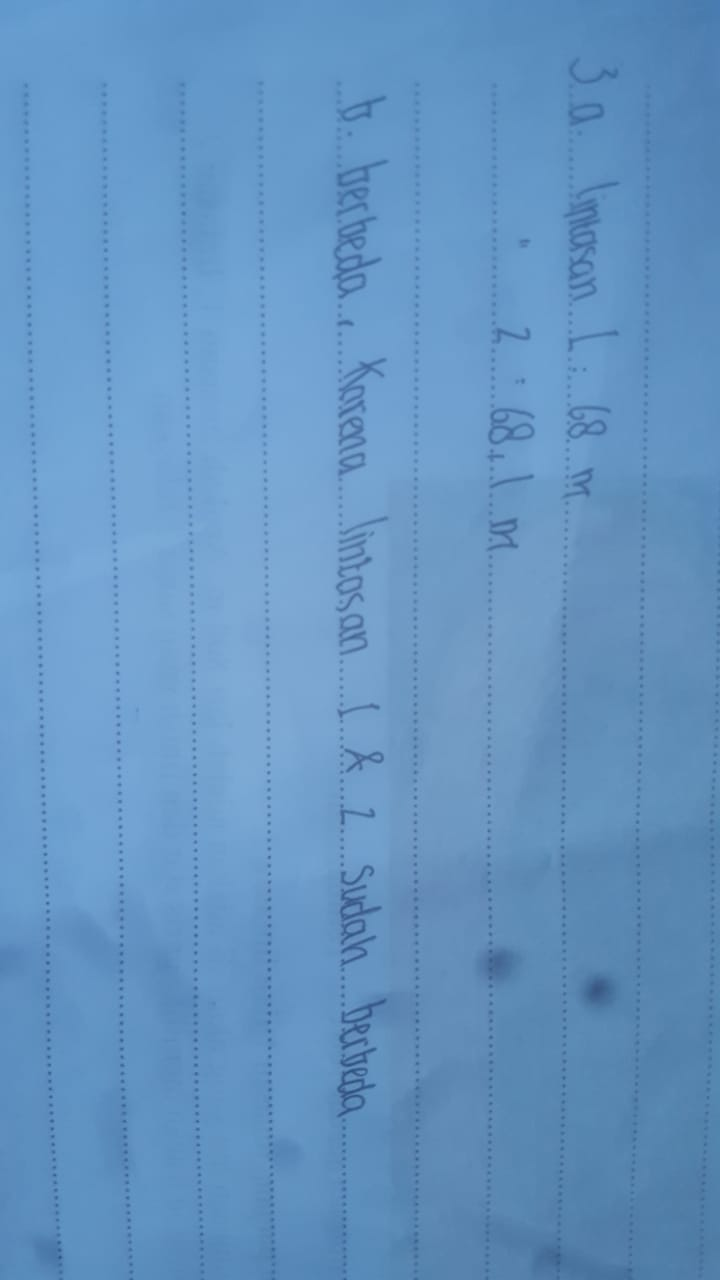 3 a. lintasan 1 : 68 m
" 2 : 68,1 m
b. berbeda, karena lintasan 1 & 2 sudah berbeda